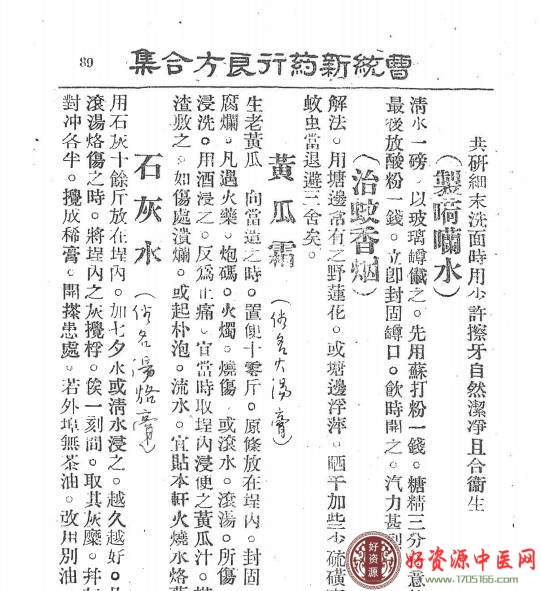 89
曹統新葯行良方合集
共硏細末洗面時用少許擦牙自然潔凈且合衞生
(製嗬囒水)
清水一磅。以玻璃罇儎之。先用蘇打粉一錢。糖精三分
最後放酸粉一錢。立卽封固罇口。飮時開之。汽力甚
(治蚊香烟)
解法。用塘邊常有之野蓮花。或塘邊浮萍。晒干加些少硫磺
蚊虫當退避三舍矣。
黃瓜霜 (俗名火湯膏)
生老黃瓜 向當造之時。置便十零斤。原條放在埕內。封固
腐爛。凡遇火藥。炮碼。火燭。燒傷 或滾水。滾湯。所傷
浸洗。用酒浸之。反爲止痛。宜當時取埕內浸便之黃瓜汁。
渣敷之。如傷處潰爛。或起朴泡。流水。宜貼本軒火燒水烙
石灰水 (俗名湯烙膏)
用石灰十餘斤放在埕內。加七夕水或清水浸之。越久越好。
滾湯烙傷之時。將埕內之灰攪桴。俟一刻間。取其灰糜。
對冲各半。攪成稀膏。開搽患處。若外埠無茶油。改用別油
好资源
好资源中医网
www.1705166.com